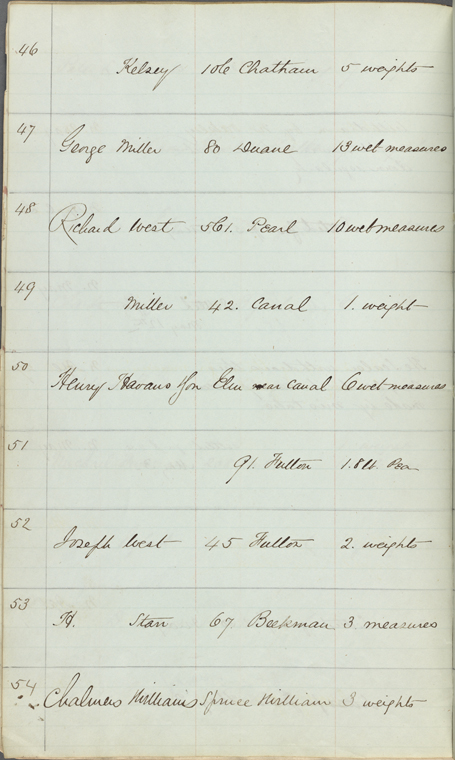 46 Kelsey 106 Chatham 5 weights
47 George Miller 80 Duane 13 wet measures
48 Richard West 561. Pearl 10 wet measures
49 Miller 42. Canal 1. weight
50 Henry Havans Elm near Canal 6 wet measures
51 91. Fulton 1. 8 lb.
52 Joseph West 45 Fulton 2. weights
53 H. Starr 67 Beekman 3 measures
54 Chalmers Williams Spruce William 3 weights